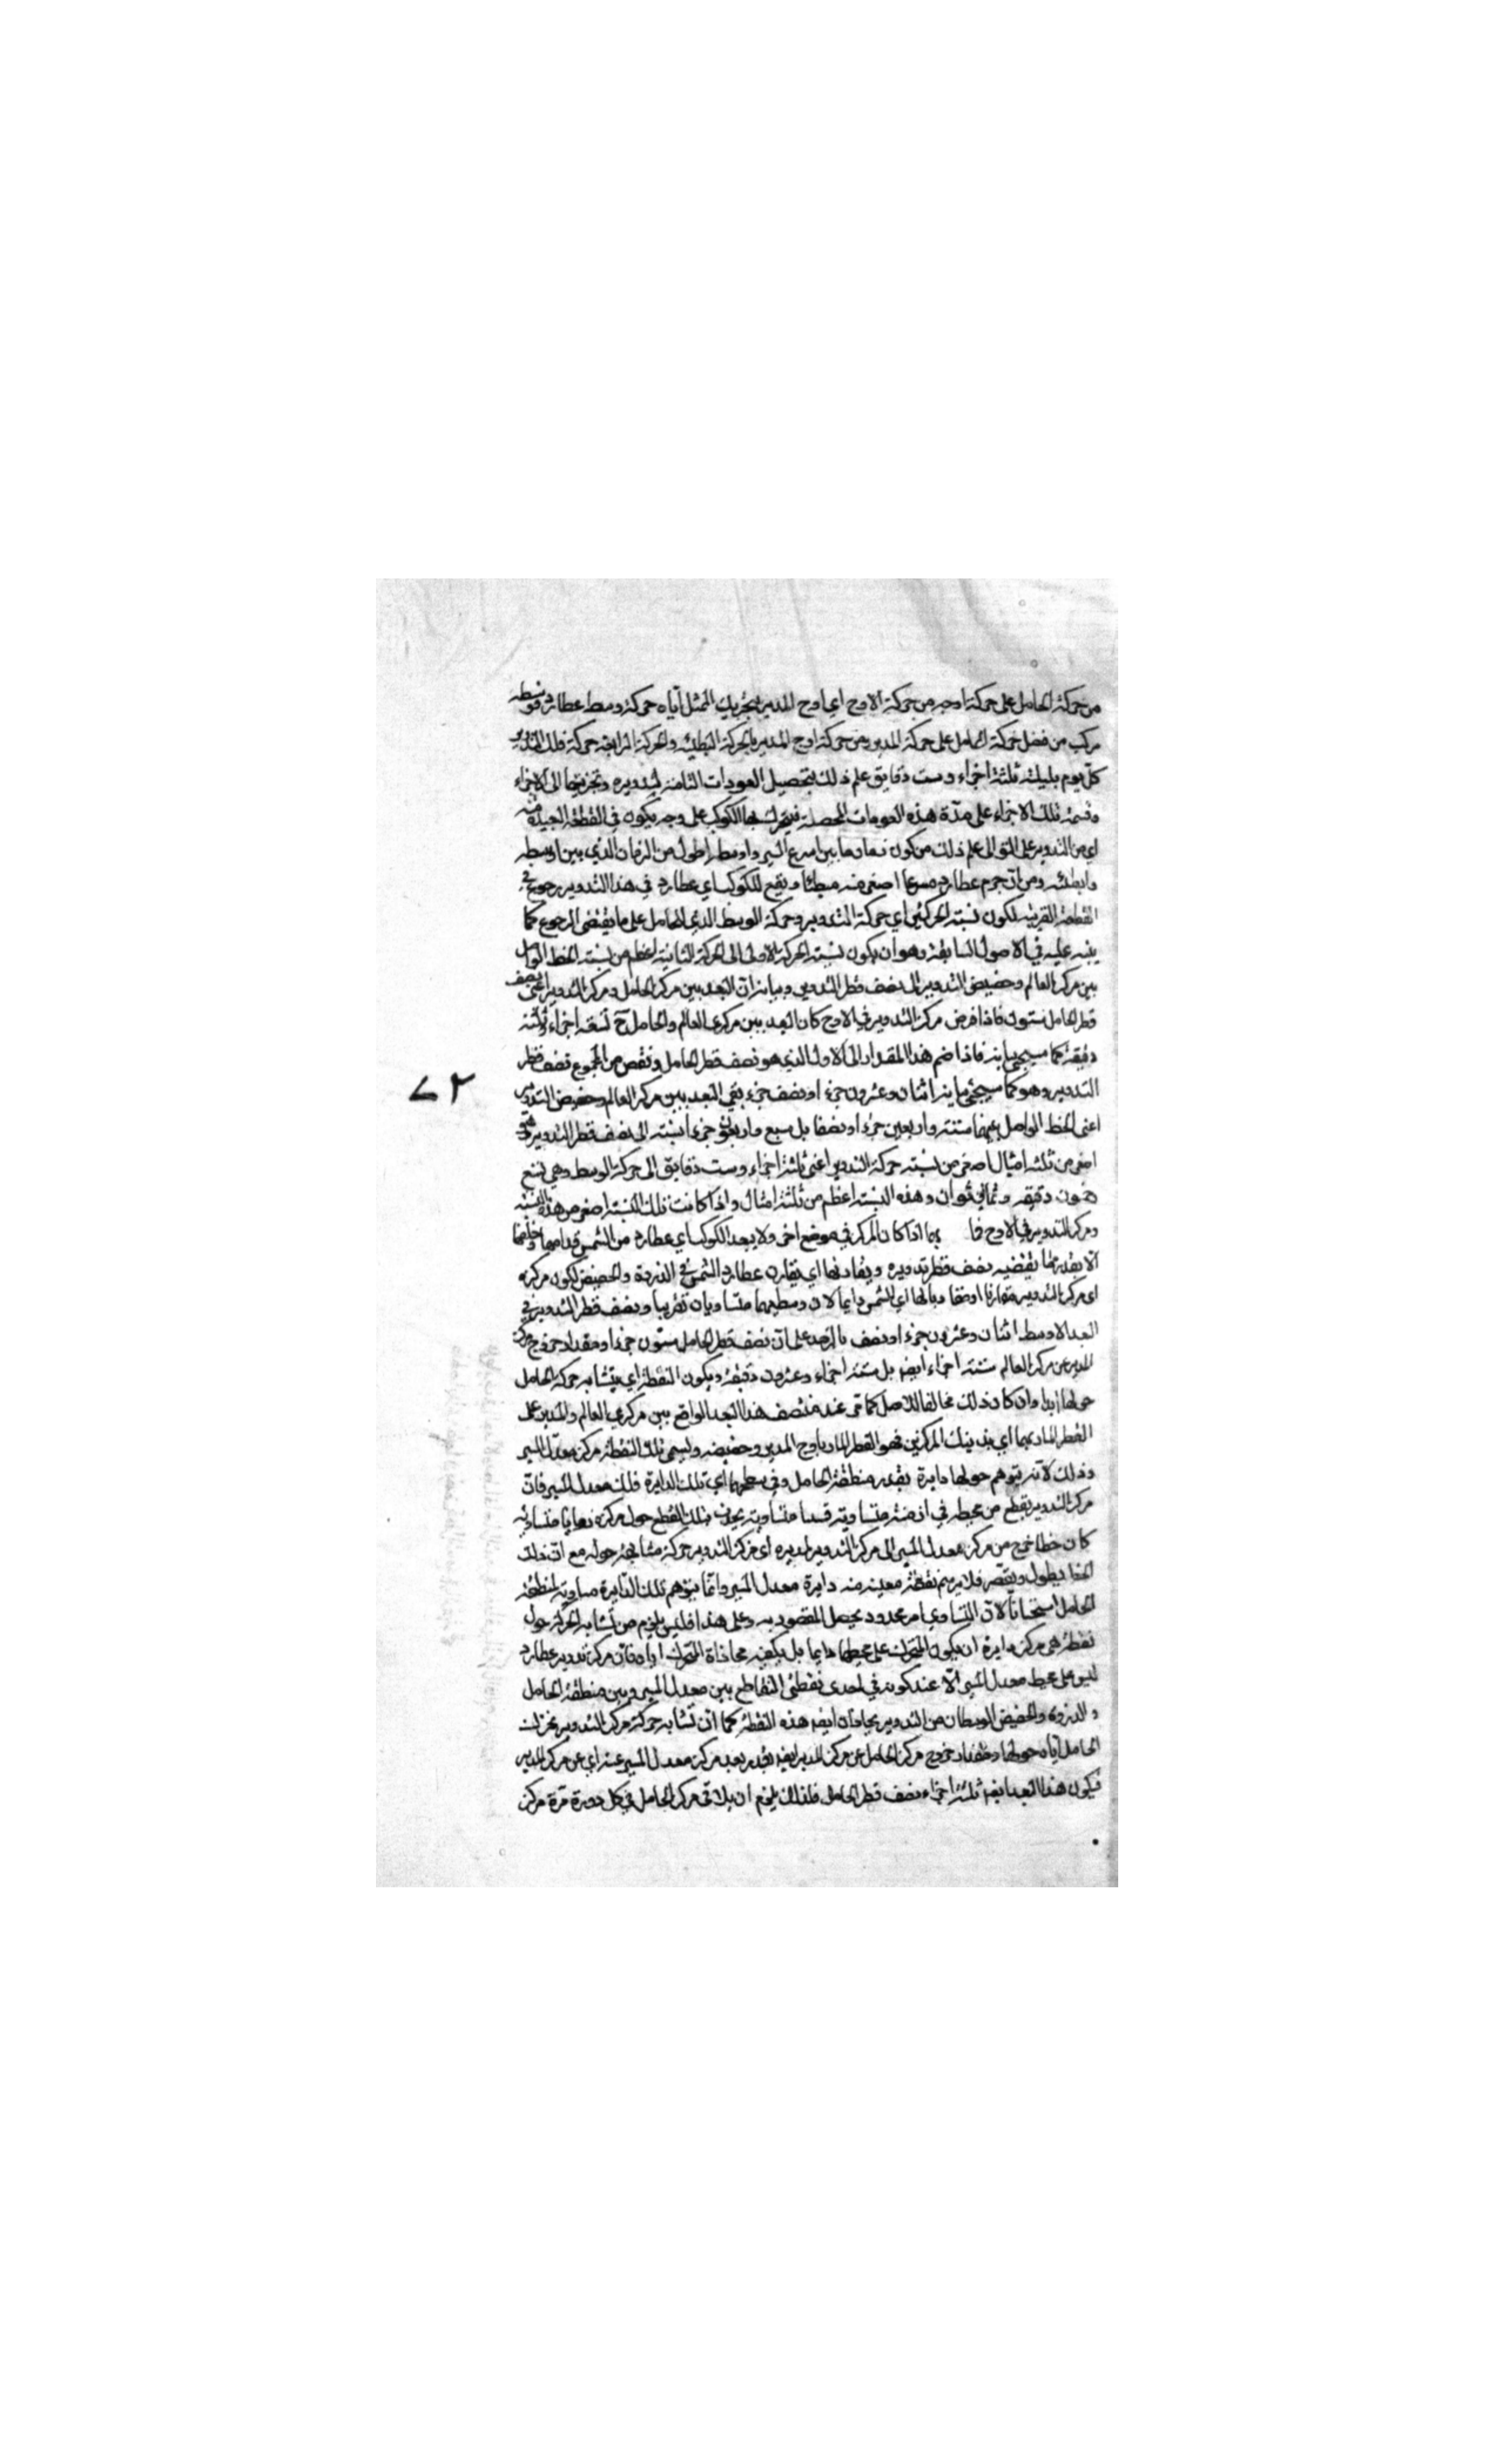 من حركة الحامل على حركة اوجه من حركة الاوج اي اوج المدير بتحريك الممثل اياه حركة وسط عطارد فوسطه
مركب من فضل حركة الحامل على حركة المدير ومن حركة اوج المدير بالحركة البطيئة والحركة الرابعة حركة فلك التدوير
كل يوم بليلته ثلثة اجزاء وست دقايق علم ذلك بتحصيل العودات التامة لتدويره وتجزيتها الى الاجزاء
وقسمة تلك الاجزاء على مدة هذه العودات المحصلة فيتحرك بها الكوكب على وجه يكون في القطعة البعيدة منه
اي من التدوير على التوالى علم ذلك من كون زمان ما بين اسرع السير واوسطه اطول من الزمان الذي بين اوسطه
وابطئه ومن ان جرم عطارد مسرعا اصغر منه مبطئا ويقع للكوكب اي عطارد في هذا التدوير رجوع في
القطعة القريبة لكون نسبة الحركتين اي حركة التدوير وحركة الوسط الذي للحامل على ما يقتضى الرجوع كما
ينبه عليه في الاصول السابقة وهو ان يكون نسبة الحركة الاولى الى الحركة الثانية اعظم من نسبة الخط الواصل
بين مركز العالم وحضيض التدوير الى نصف قطر التدوير وبيانه ان البعد بين مركز الحامل ومركز التدوير اعنى نصف
قطر الحامل ستون فاذا فرض مركز التدوير في الاوج كان البعد بين مركزي العالم والحامل ح تسعة اجزاء وثلثه
دقيقة كما سيجئ بيانه فاذا ضم هذا المقدار الى الاول الذي هو نصف قطر الحامل ونقص من المجموع نصف قطر
التدوير وهو كما سيجئ بيانه اثنان وعشرون جزء اونصف جزء بقى البعد بين مركز العالم وحضيض التدوير
٧٢
اعنى الخط الواصل بينهما ستة واربعين جزء اونصفا بل سبع واربعون جزءا نسبته الى نصف قطر التدوير
اصغر من ثلثه امثال اصغر من نسبة حركة التدوير اعنى ثلثة اجزاء وست دقايق الى حركة الوسط وهي تسع
خمسون دقيقه وثمانى ثوان وهذه النسبة اعظم من ثلثة امثال واذا كانت تلك النسبة اصغر من هذه النسبة
ومركز التدوير في الاوج فا بما اذا كان المركز في موضع اخر ولا يبعد الكوكب اي عطارد من الشمس قدامها وخلفها
الا بقدر ما يقتضيه نصف قطر تدويره ويقارنها اي يقارن عطارد الشمس في الذروة والحضيض لكون مركزه
اى مركز التدوير مقارنا لها اي الشمس دايما لان وسطيهما متساويان تقريبا ونصف قطر التدوير في
البعد الاوسط اثنان وعشرون جزء اونصف بالرصد على ان نصف قطر الحامل ستون جزءا ومقدار خروج مركز
المدير عن مركز العالم ستة اجزاء ايضا بل ستة اجزاء وعشرون دقيقة ويكون النقطة اي يتشابه حركة الحامل
حولها ابدا وان كان ذلك مخالفا للاصل كما مر عند منتصف هذا البعد الواقع بين مركزي العالم والمدير على
القطر المار بهما اي بذينك المركزين فهو القطر المار باوج المدير وحضيضه ويسمى تلك النقطة مركز معدل المسير
وذلك لانه يتوهم حولها دايرة بقدر منطقة الحامل وفي سطحها اي تلك الدايرة فلك معدل المسير فان
مركز التدوير يقطع من محيطه في ازمنة متساوية قسيا متساوية يحدث بتلك القطع حول مركزه زوايا متساوية
كان خطا خرج من مركز معدل المسير الى مركز التدوير لمديره اى مركز التدوير حركة متشابهة حوله مع ان ذلك
الخط يطول ويقصر فلا يرسم نقطة معينه منه دايرة معدل المسير وانما يتوهم تلك الدايرة مساوية لمنطقة
الحامل استحسانا لان التساوي امر محدود يحصل المقصود به وعلى هذا فليس يلزم من تشابه الحركة حول
نقطة هي مركز دايرة ان يكون المتحرك على محيطها دايما بل يكفيه محاذاة المتحرك اياه فان مركز تدوير عطارد
ليس على محيط معدل المسير الا عند كونه في احدى نقطتى التقاطع بين معدل المسير وبين منطقة الحامل
والذروة والحضيض الوسطان من التدوير يحاذيان ايضا هذه النقطة كما ان تشابه حركة مركز التدوير بتحريك
الحامل اياه حولها ومقدار خروج مركز الحامل عن مركز المدير ايضا بقدر بعد مركز معدل المسير عنه اي عن مركز المدير
فيكون هذا البعد ايضا ثلثة اجزاء نصف قطر الحامل فلذلك يلزم ان يلاقى مركز الحامل في كل دورة مرة مركز